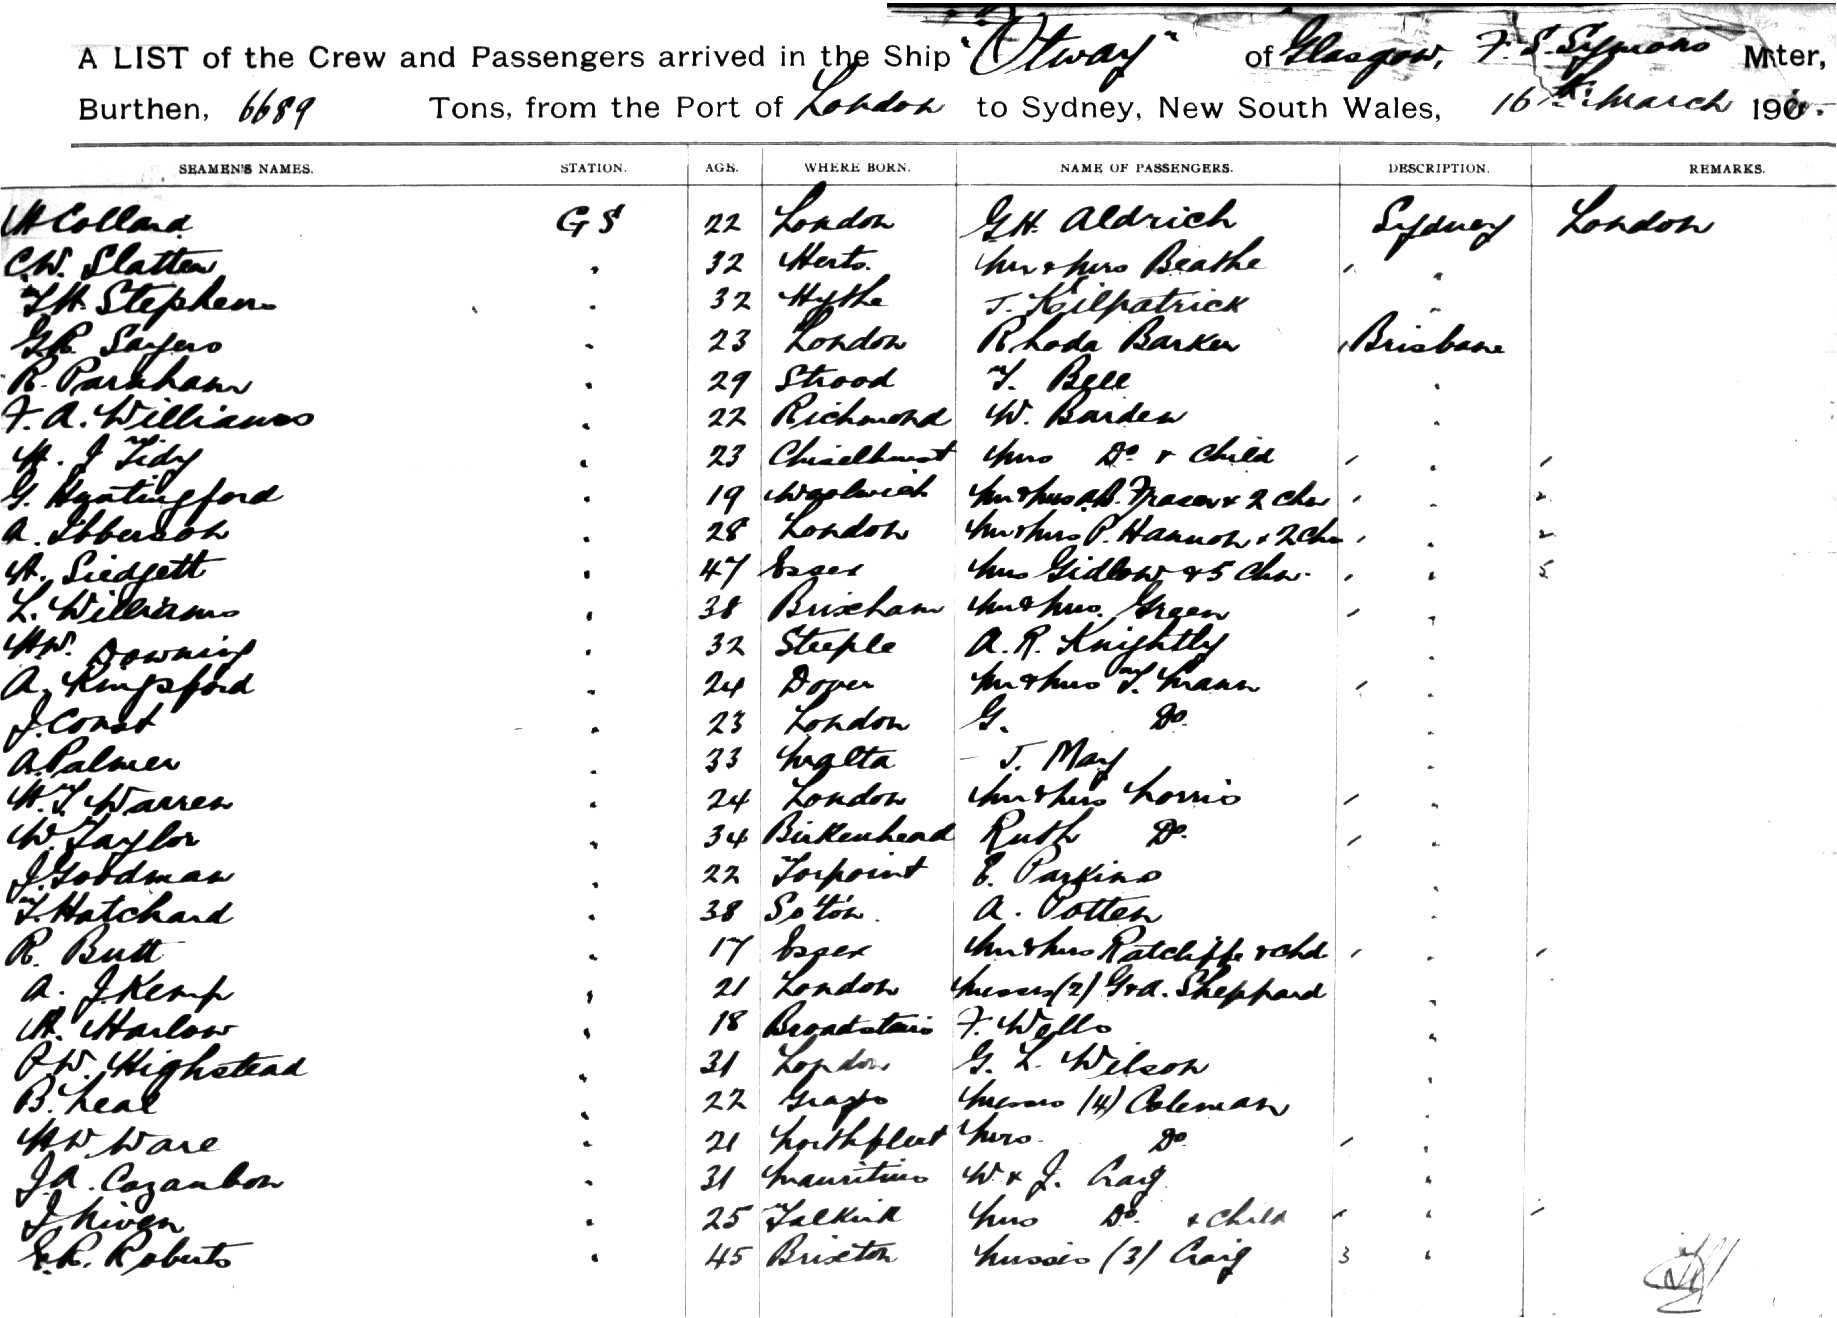 A LIST of the Crew and Passengers arrived in the Ship "Otway" of Glasgow, F. S. Symons Mster,
Burthen, 6689 Tons, from the Port of London to Sydney, New South Wales, 16th March 190
SEAMEN'S NAMES. STATION. AGE. WHERE BORN. NAME OF PASSENGERS. DESCRIPTION. REMARKS.
H Collard G S 22 London G H. Aldrich Sydney London
C.W. Slatter " 32 Herts. Mr & Mrs Beathe ' "
T.H. Stephens " 32 Hythe J. Kilpatrick "
G.R. Sayers " 23 London Rhoda Barker ' Brisbane
R. Parnham " 29 Strood T. Bell "
F. A. Williams " 22 Richmond W. Barden "
H. J Tidy " 23 Chiselhurst Mrs Do & Child ' " '
G. Huntingford " 19 Woolwich Mr & Mrs A.B. Fraser & 2 Chn ' " 2
A. Ibberson " 28 London Mr & Mrs P. Hannon & 2 Chn ' " 2
H. Siedgett " 47 Essex Mrs Gidlow & 5 Chn. ' " 5
L. Williams " 38 Brixham Mr & Mrs. Green ' "
H.W. Downing " 32 Steeple A. R. Knightly "
A. Kingsford " 24 Dover Mr & Mrs T. Mann ' "
J. Const " 23 London G. Do. "
A. Palmer " 33 Malta J. May "
H. T. Warren " 24 London Mr & Mrs Morris ' "
W. Taylor " 34 Birkenhead Ruth Do. ' "
J. Goodman " 22 Torpoint E. Parkins "
T. Hatchard " 38 So'ton. A. Potten "
R. Butt " 17 Essex Mr & Mrs Ratcliffe & Chd ' " '
A. J. Kemp " 21 London Messrs (2) G & A. Sheppard "
H. Harlow " 18 Broadstairs F. Wells "
P.W. Highstead " 31 London G. L. Wilson "
B. Neal " 22 Grays Messrs (4) Coleman "
H W Ware " 21 Northfleet Mrs. Do. ' "
J.A. Cazambon " 31 Mauritius W & J. Craig "
J. Niven " 25 Falkirk Mrs Do. & Child ' " '
E.R. Roberts " 45 Brixton Misses (3) Craig 3 "